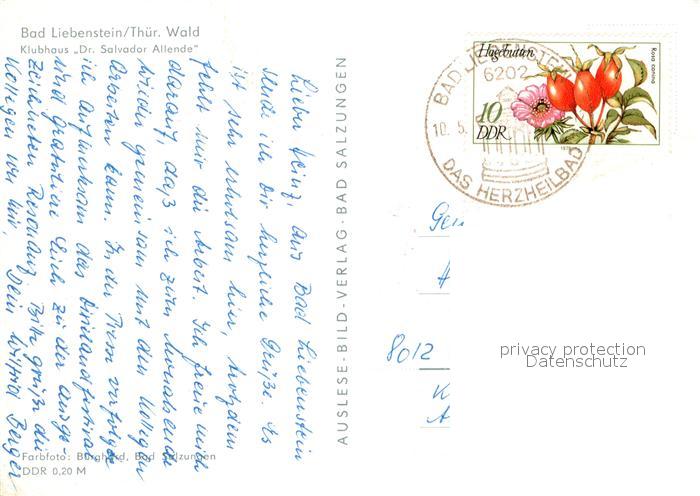 Bad Liebenstein/Thür. Wald
Klubhaus „Dr. Salvador Allende"
Lieber Heinz, aus Bad Liebenstein
sende ich Dir herzliche Grüße. Es
ist sehr erholsam hier, trotzdem
fehlt mir die Arbeit. Ich freue mich
darauf, daß ich zum Monatsende
wieder gemeinsam mit den Kollegen
arbeiten kann. In der Presse verfolge
ich aufmerksam das
und gratuliere Euch zu der ausge-
zeichneten Resonanz. Bitte grüße die
Kollegen von mir, Dein Wilfried Berger
Farbfoto: Burghard, Bad Salzungen
DDR 0,20 M
AUSLESE-BILD-VERLAG · BAD SALZUNGEN
Hagebutten
Rosa canina
10
DDR
BAD LIEBENSTEIN
6202
10.5.
DAS HERZHEILBAD
Gen
8012
privacy protection
Datenschutz